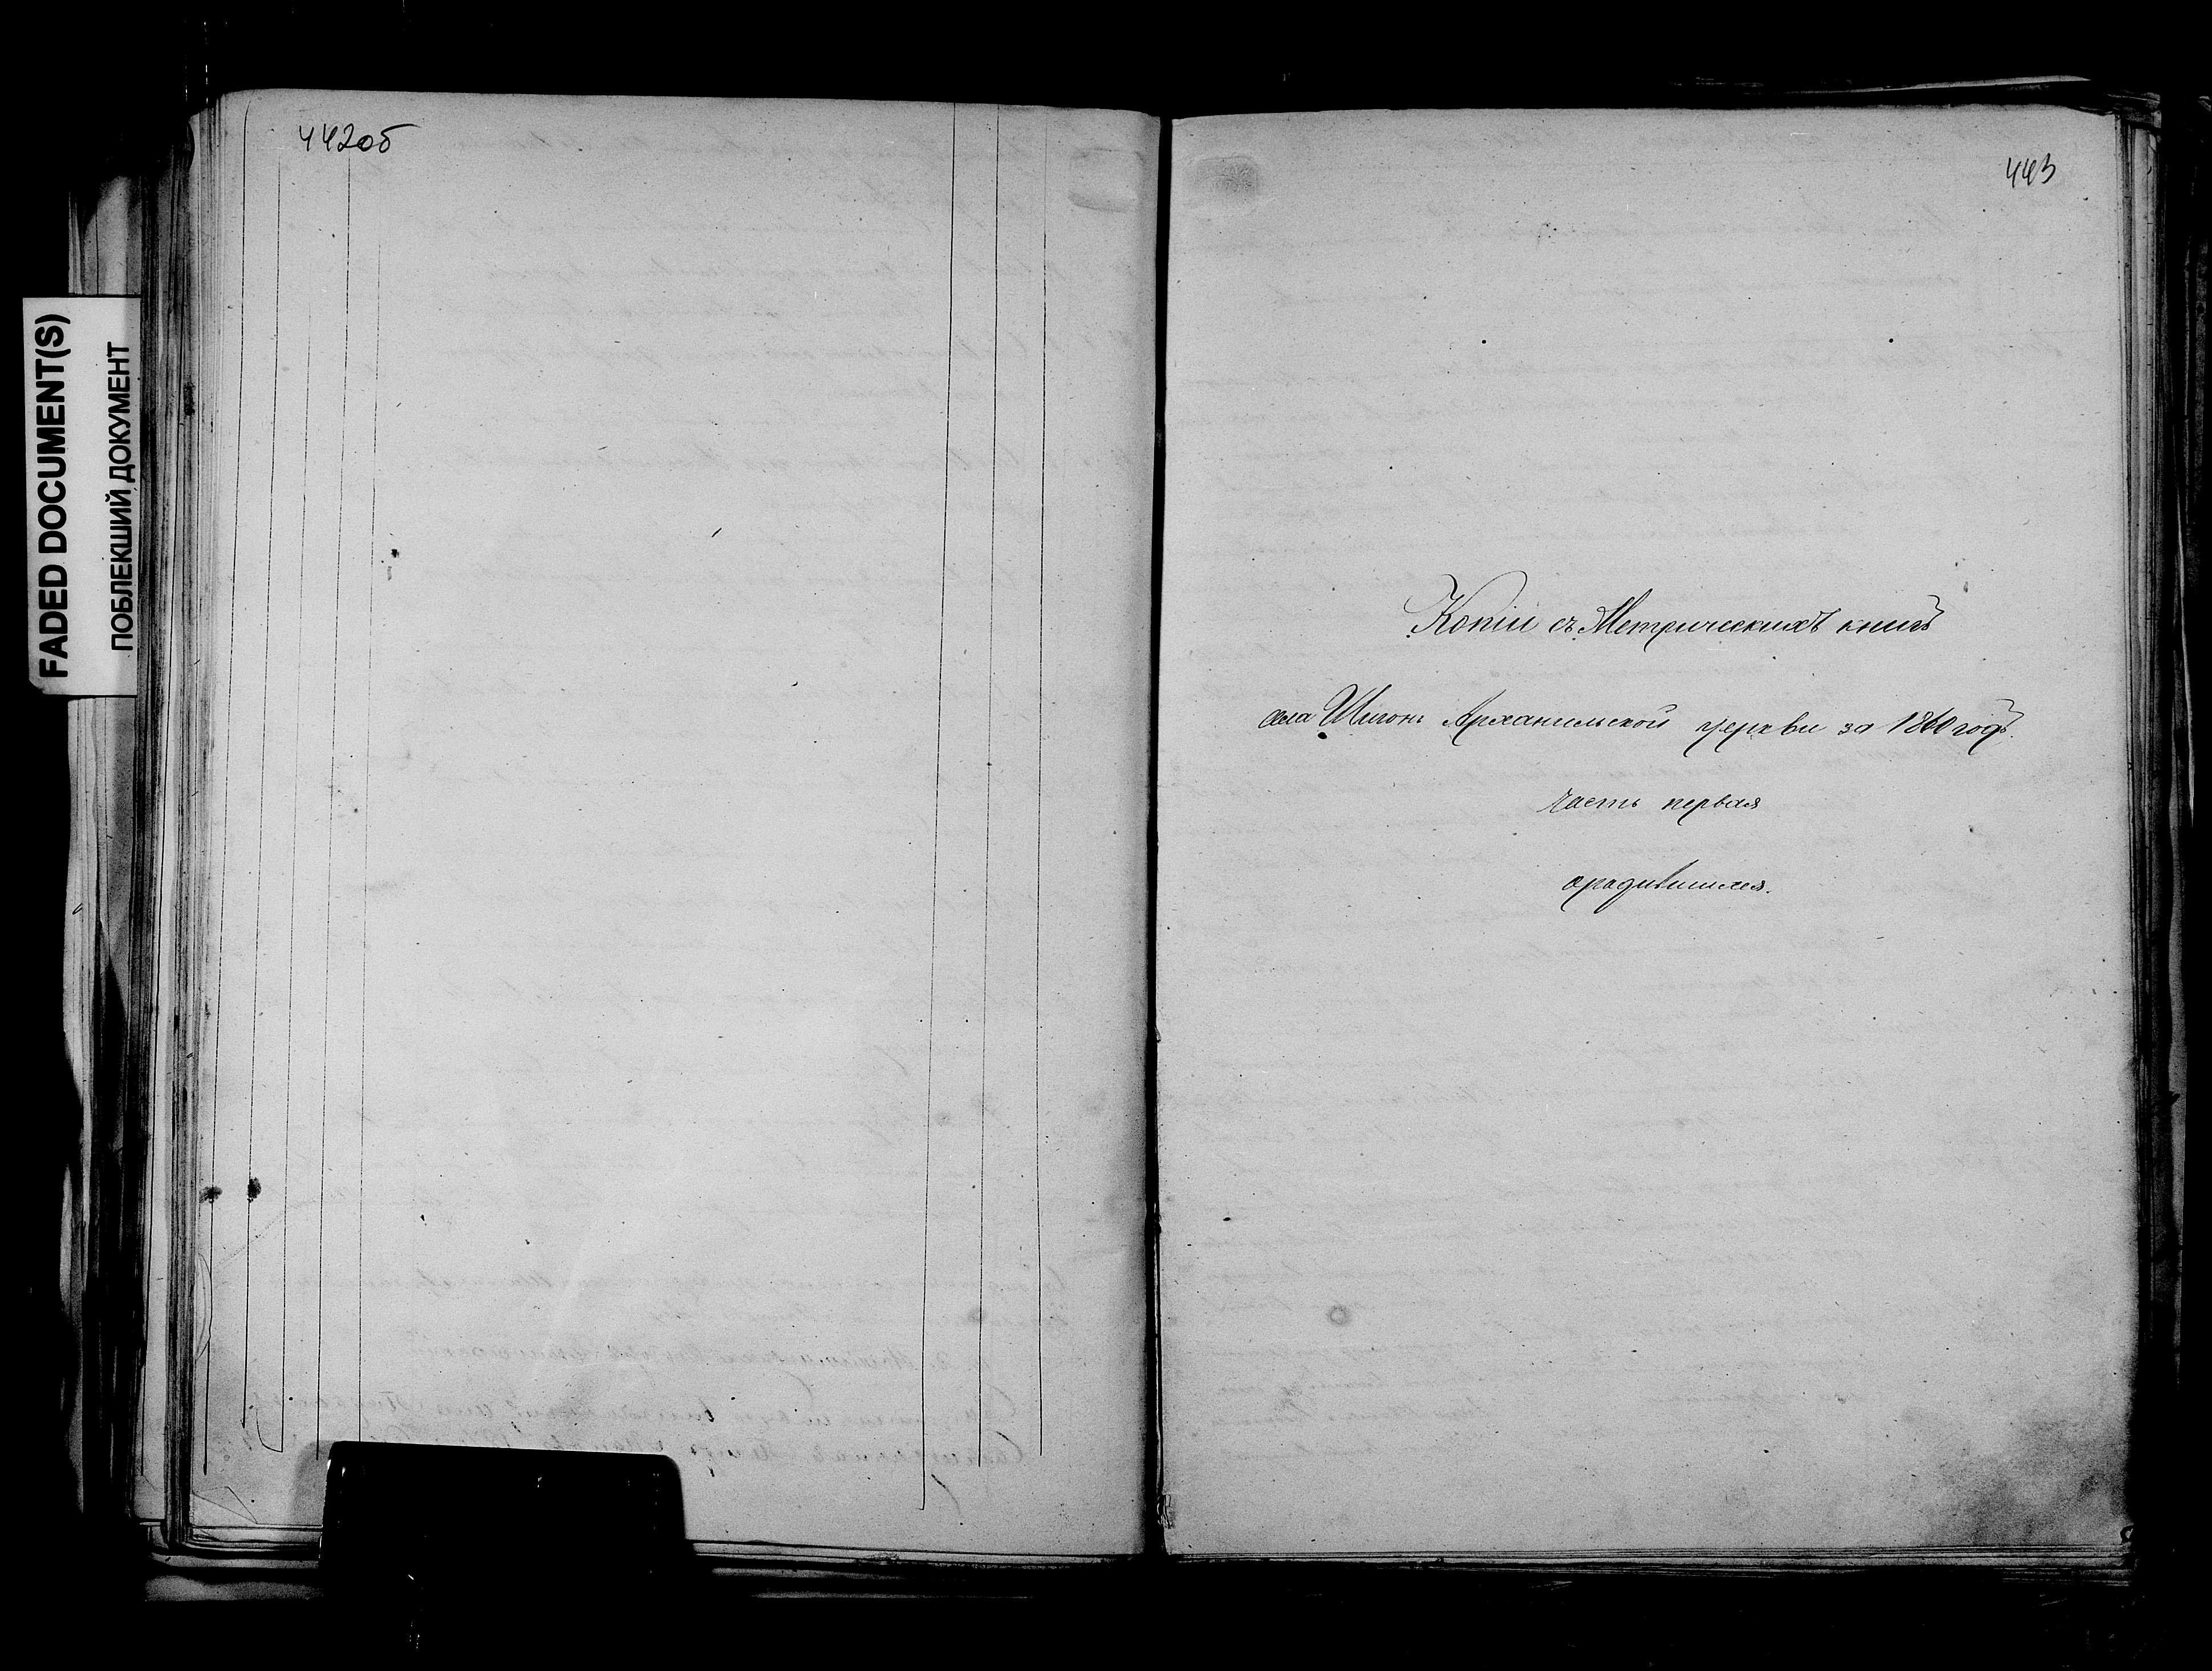 FADED DOCUMENT(S)
ПОБЛЕКШИЙ ДОКУМЕНТ
442об
443
Копіи съ Метрическихъ книгъ
села Шигонъ Архангельской церкви за 1860 годъ.
часть первая
о родившихся.